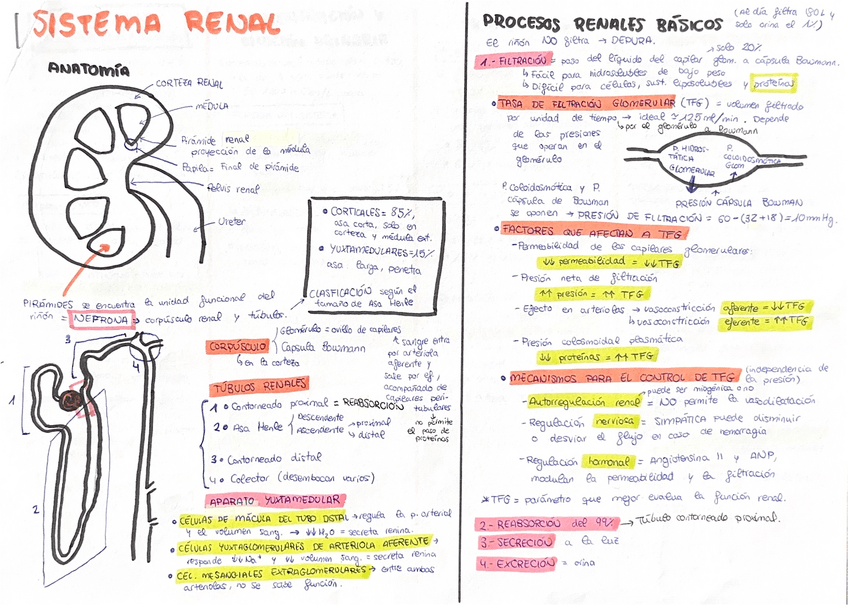 SISTEMA RENAL
ANATOMÍA
CORTEZA RENAL
MÉDULA
Pirámide renal
proyección de la médula
Papila = Final de pirámide
Pelvis renal
Ureter
• CORTICALES = 85%
asa corta, solo en
corteza y médula ext.
• YUXTAMEDULARES = 15%
asa larga, penetra
CLASIFICACIÓN según el
tamaño de Asa Henle
PIRÁMIDES se encuentra la unidad funcional del
riñón = NEFRONA → corpúsculo renal y túbulos.
1
2
3
4
CORPÚSCULO
Glomérulo = ovillo de capilares
Cápsula Bowmann
↳ en la corteza
sangre entra
por arteriola
aferente y
sale por ef,
acompañado de
capilares peri-
tubulares
no permite
el paso de
proteínas
TÚBULOS RENALES
1 • Contorneado proximal = REABSORCIÓN
2 • Asa Henle
Descendente
Ascendente → proximal
↳ distal
3 • Contorneado distal
4 • Colector (desembocan varios)
APARATO YUXTAMEDULAR
• CÉLULAS DE MÁCULA DEL TUBO DISTAL → regula la p. arterial
y el volumen sang. → ↓↓ H₂O = secreta renina.
• CÉLULAS YUXTAGLOMERULARES DE ARTERIOLA AFERENTE ↳
responde ↓↓ Na⁺ y ↓↓ volumen sang. = secreta renina
• CEL. MESANGIALES EXTRAGLOMERULARES → entre ambas
arteriolas, no se sabe función.
PROCESOS RENALES BÁSICOS
(Al día filtra 180 L y
solo orina el 1%)
El riñón NO filtra → DEPURA.
solo 20%
1 - FILTRACIÓN = paso del líquido del capilar glom. a cápsula Bowmann.
↳ Fácil para hidrosolubles de bajo peso
↳ Difícil para células, sust. liposolubles y proteínas
• TASA DE FILTRACIÓN GLOMERULAR (TFG) = volumen filtrado
por unidad de tiempo → ideal ≃ 125 ml/min. Depende
↳ por el glomérulo a Bowmann
de las presiones
que operan en el
glomérulo
P. HIDROS-
TÁTICA
GLOMERULAR
P.
COLOIDOSMÓTICA
GLOM
PRESIÓN CÁPSULA BOWMAN
P. coloidosmótica y P.
cápsula de Bowman
se oponen → PRESIÓN DE FILTRACIÓN = 60 - (32 + 18) = 10 mmHg.
• FACTORES QUE AFECTAN A TFG
- Permeabilidad de los capilares glomerulares:
↓↓ permeabilidad = ↓↓ TFG
- Presión neta de filtración
↑↑ presión = ↑↑ TFG
- Efecto en arteriolas → vasoconstricción aferente = ↓↓ TFG
↳ vasoconstricción eferente = ↑↑ TFG
- Presión colosmoidal plasmática
↓↓ proteínas = ↑↑ TFG
• MECANISMOS PARA EL CONTROL DE TFG (independencia de
la presión)
puede ser miogénica o no
- Autorregulación renal = NO permite la vasodilatación
- Regulación nerviosa = SIMPÁTICA puede disminuir
o desviar el flujo en caso de hemoragia
- Regulación hormonal = Angiotensina II y ANP,
modulan la permeabilidad y la filtración
* TFG = parámetro que mejor evalua la función renal.
2 - REABSORCIÓN del 99% → Túbulo contorneado proximal.
3 - SECRECIÓN a la luz
4 - EXCRECIÓN = orina